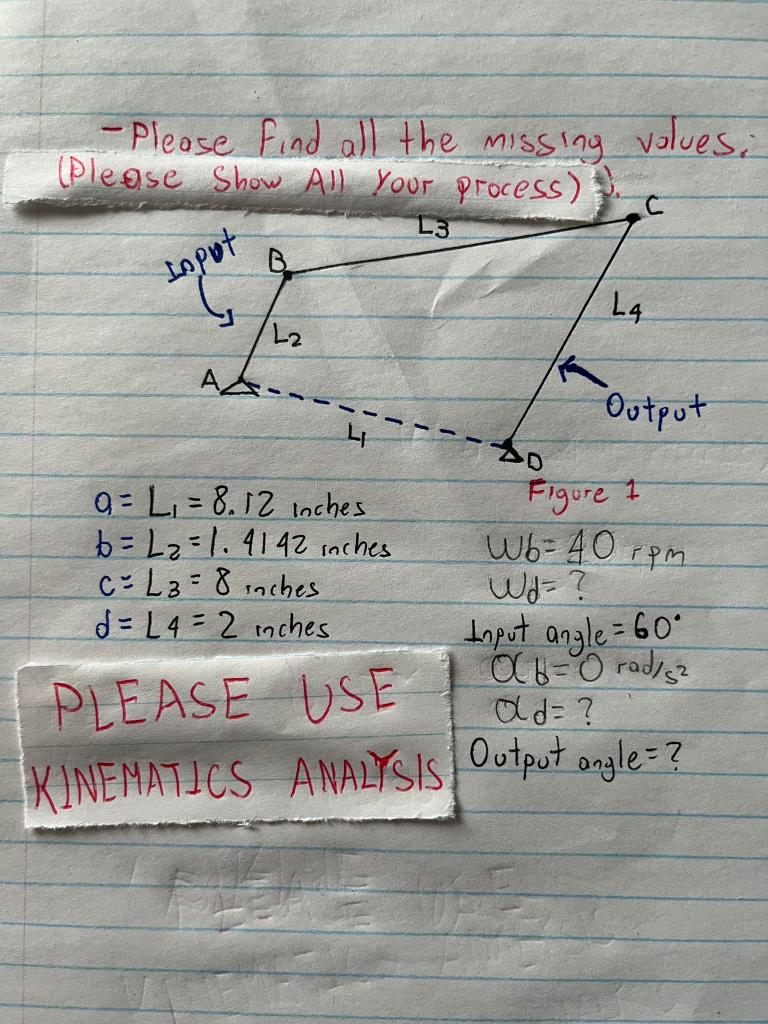 - Please find all the missing values.
(Please Show All Your process)).
C
L3
Input
B
L2
L4
A
Output
L1
D
Figure 1
a = L1 = 8.12 inches
b = L2 = 1.4142 inches
c = L3 = 8 inches
d = L4 = 2 inches
Wb = 40 rpm
Wd = ?
Input angle = 60°
αb = 0 rad/s²
αd = ?
Output angle = ?
PLEASE USE
KINEMATICS ANALYSIS